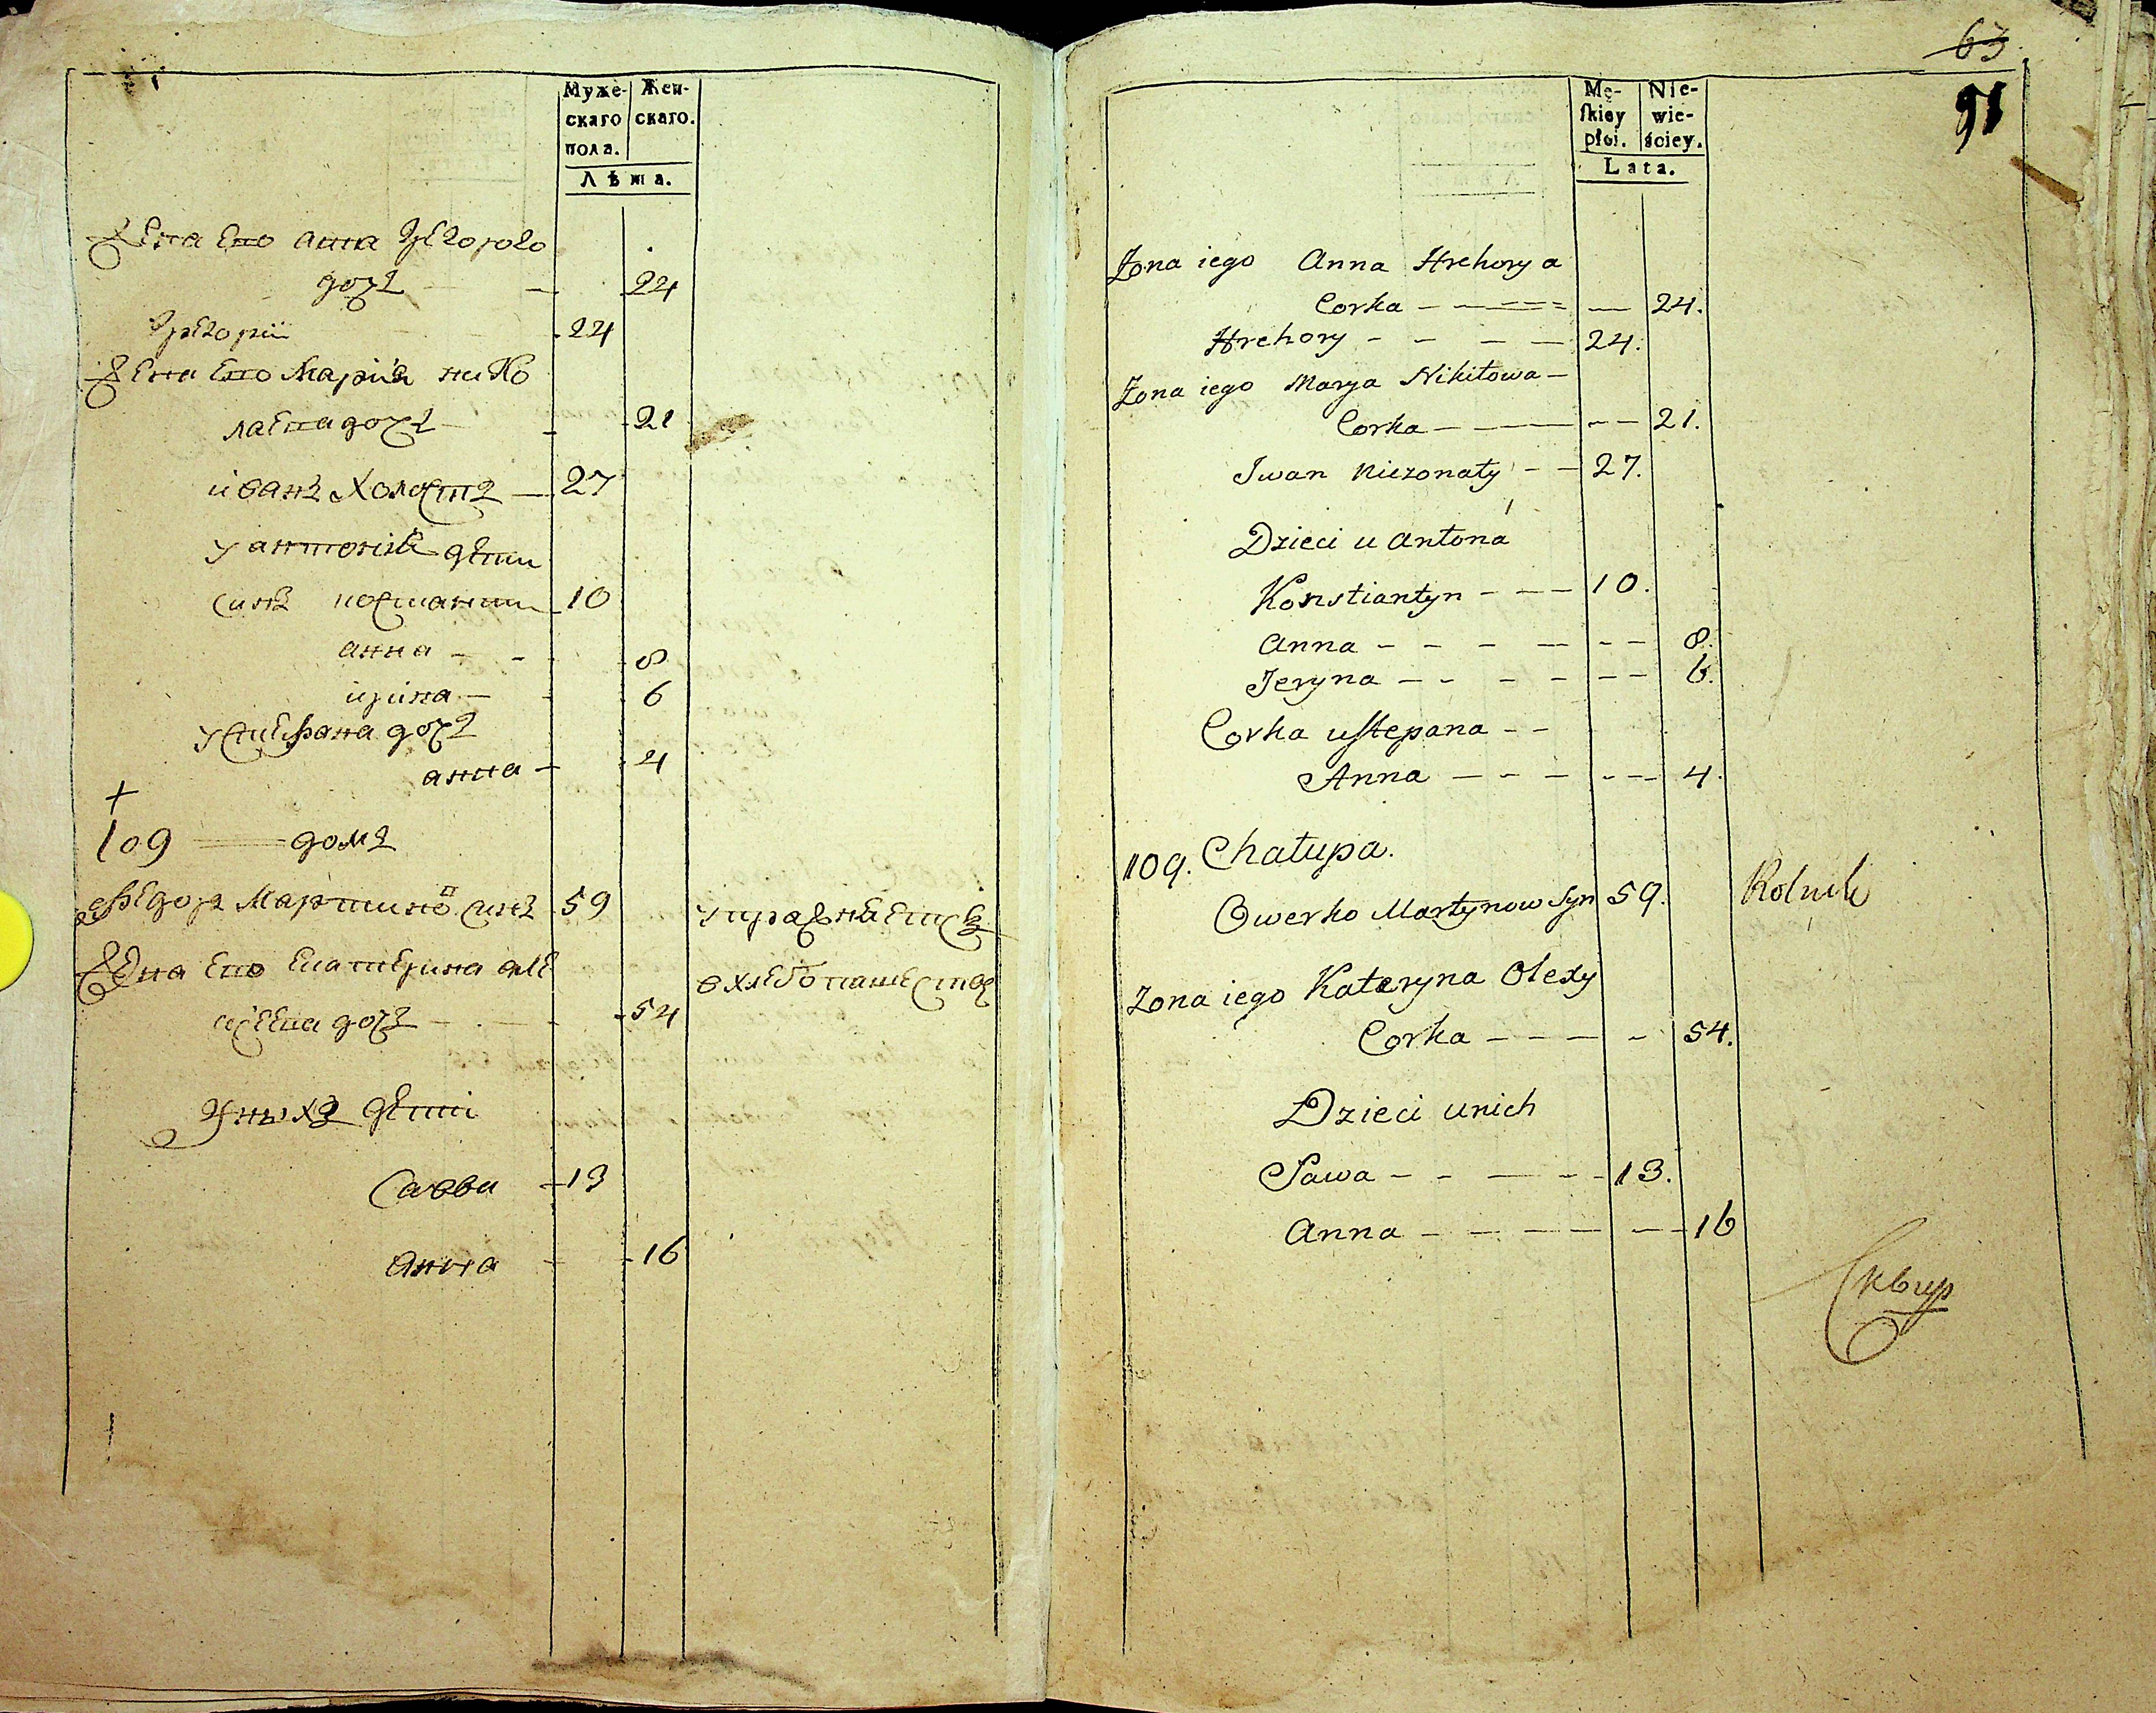 Муже-
скаго
пола.
Жен-
скаго.
Лѣта.
Жена Его анна григорова
дочь 24
григорий 24
Жена Его Мариа нико
лаева дочь 21
иванъ холостъ 27
у антония дети
синъ костантин 10
анна 8
ирина 6
у стефана дочь
анна 4
109 домъ
Федоръ Мартиновъ синъ 59 упражняется
Жена Его Екатерина але
в хлебопашестве
ксеева дочь 54
У нихъ дети
Савва 13
анна 16
63.
91
Mę-
ſkiey
płci.
Nie-
wie-
ściey.
Lata.
Żona iego Anna Hrehorya
Corka 24.
Hrehory 24.
Żona iego Marya Nikitowa
Corka 21.
Iwan Niezonaty 27.
Dzieci u Antona
Konstiantyn 10.
Anna 8.
Jeryna 6.
Corka u Stepana
Anna 4.
109. Chałupa.
Owerko Martynow Syn 59. Rolnik
Zona iego Kateryna Olexy
Corka 54.
Dzieci u nich
Sawa 13.
Anna 16
Сквир